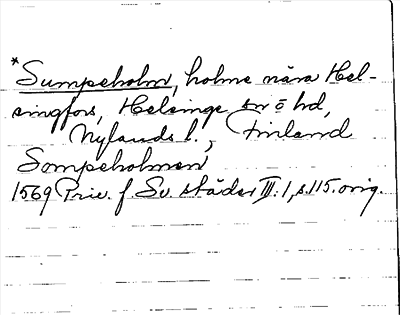 *Sumpeholm, holme nära Hel-
singfors, Helsinge sn ö hd,
Nylands l., Finland
Sompeholmen
1569 Priv. f Sv. städer III:1, s. 115. orig.